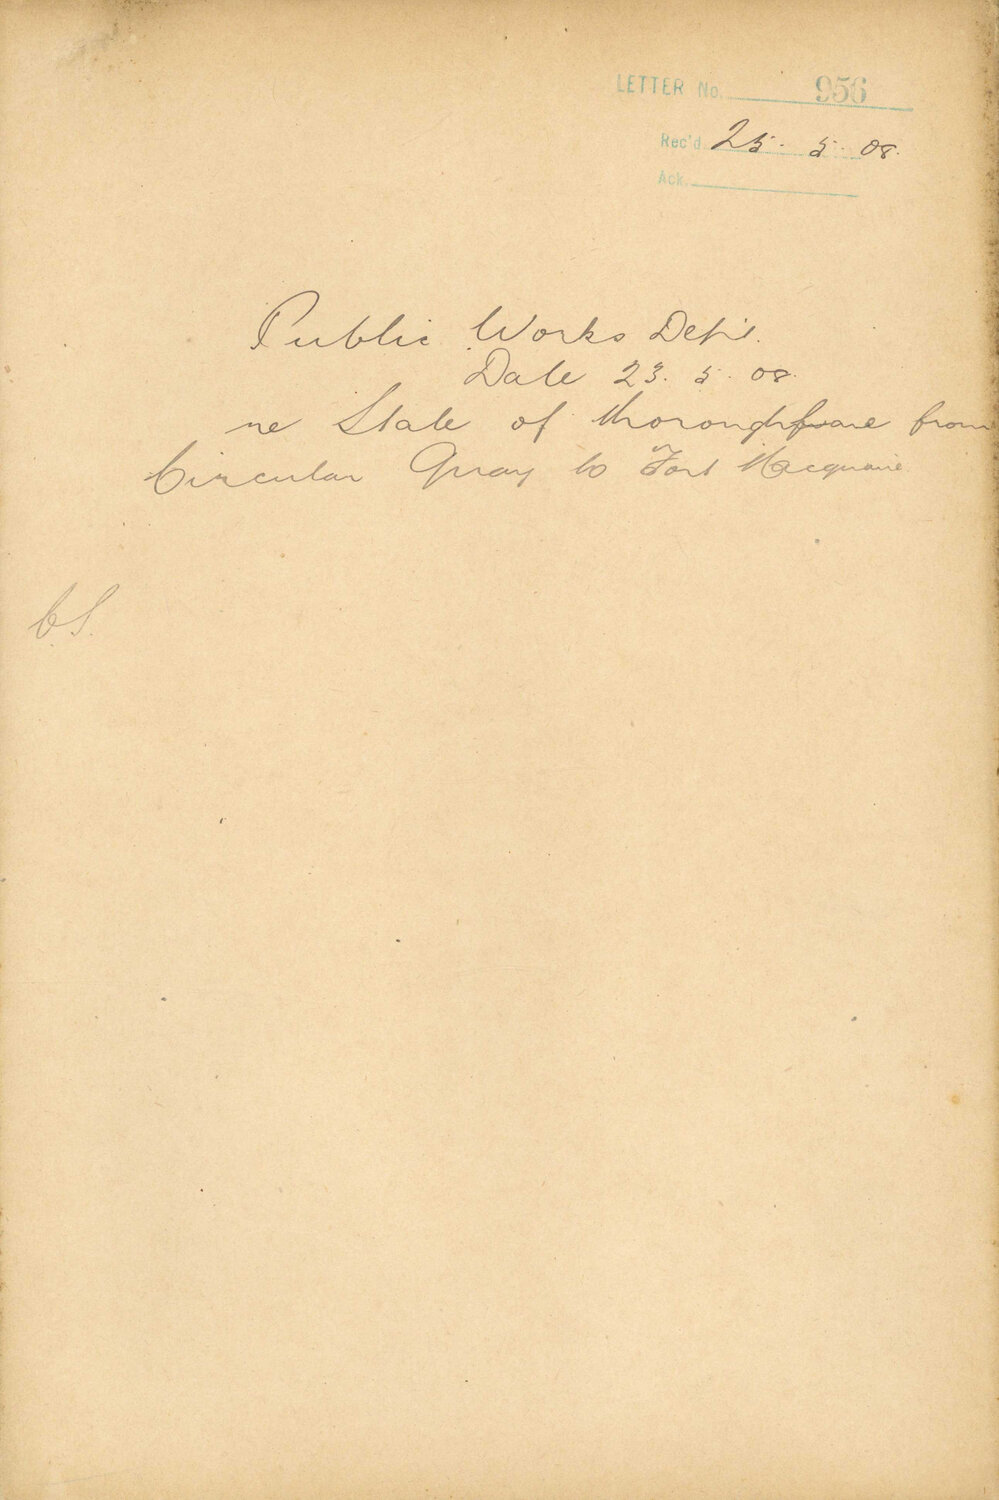 LETTER No. 956
Rec'd 25. 5. 08.
Ack.
Public Works Dept.
Date 23. 5. 08.
re State of thoroughfare from
Circular Quay to Fort Macquarie
CS.